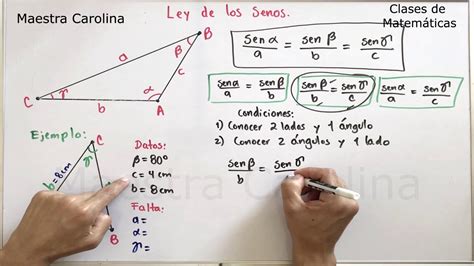 Maestra Carolina
Ley de los Senos.
Clases de
Matemáticas
B
β
a
c
C
γ
α
b
A
sen α / a = sen β / b = sen γ / c
sen α / a = sen β / b
sen β / b = sen γ / c
sen α / a = sen γ / c
Condiciones:
1) Conocer 2 lados y 1 ángulo
2) Conocer 2 ángulos y 1 lado
Ejemplo:
C
γ
b=8cm
B
Datos:
β=80°
c=4 cm
b=8cm
Falta:
a=
α=
γ=
sen β / b = sen γ
Maestra Carolina